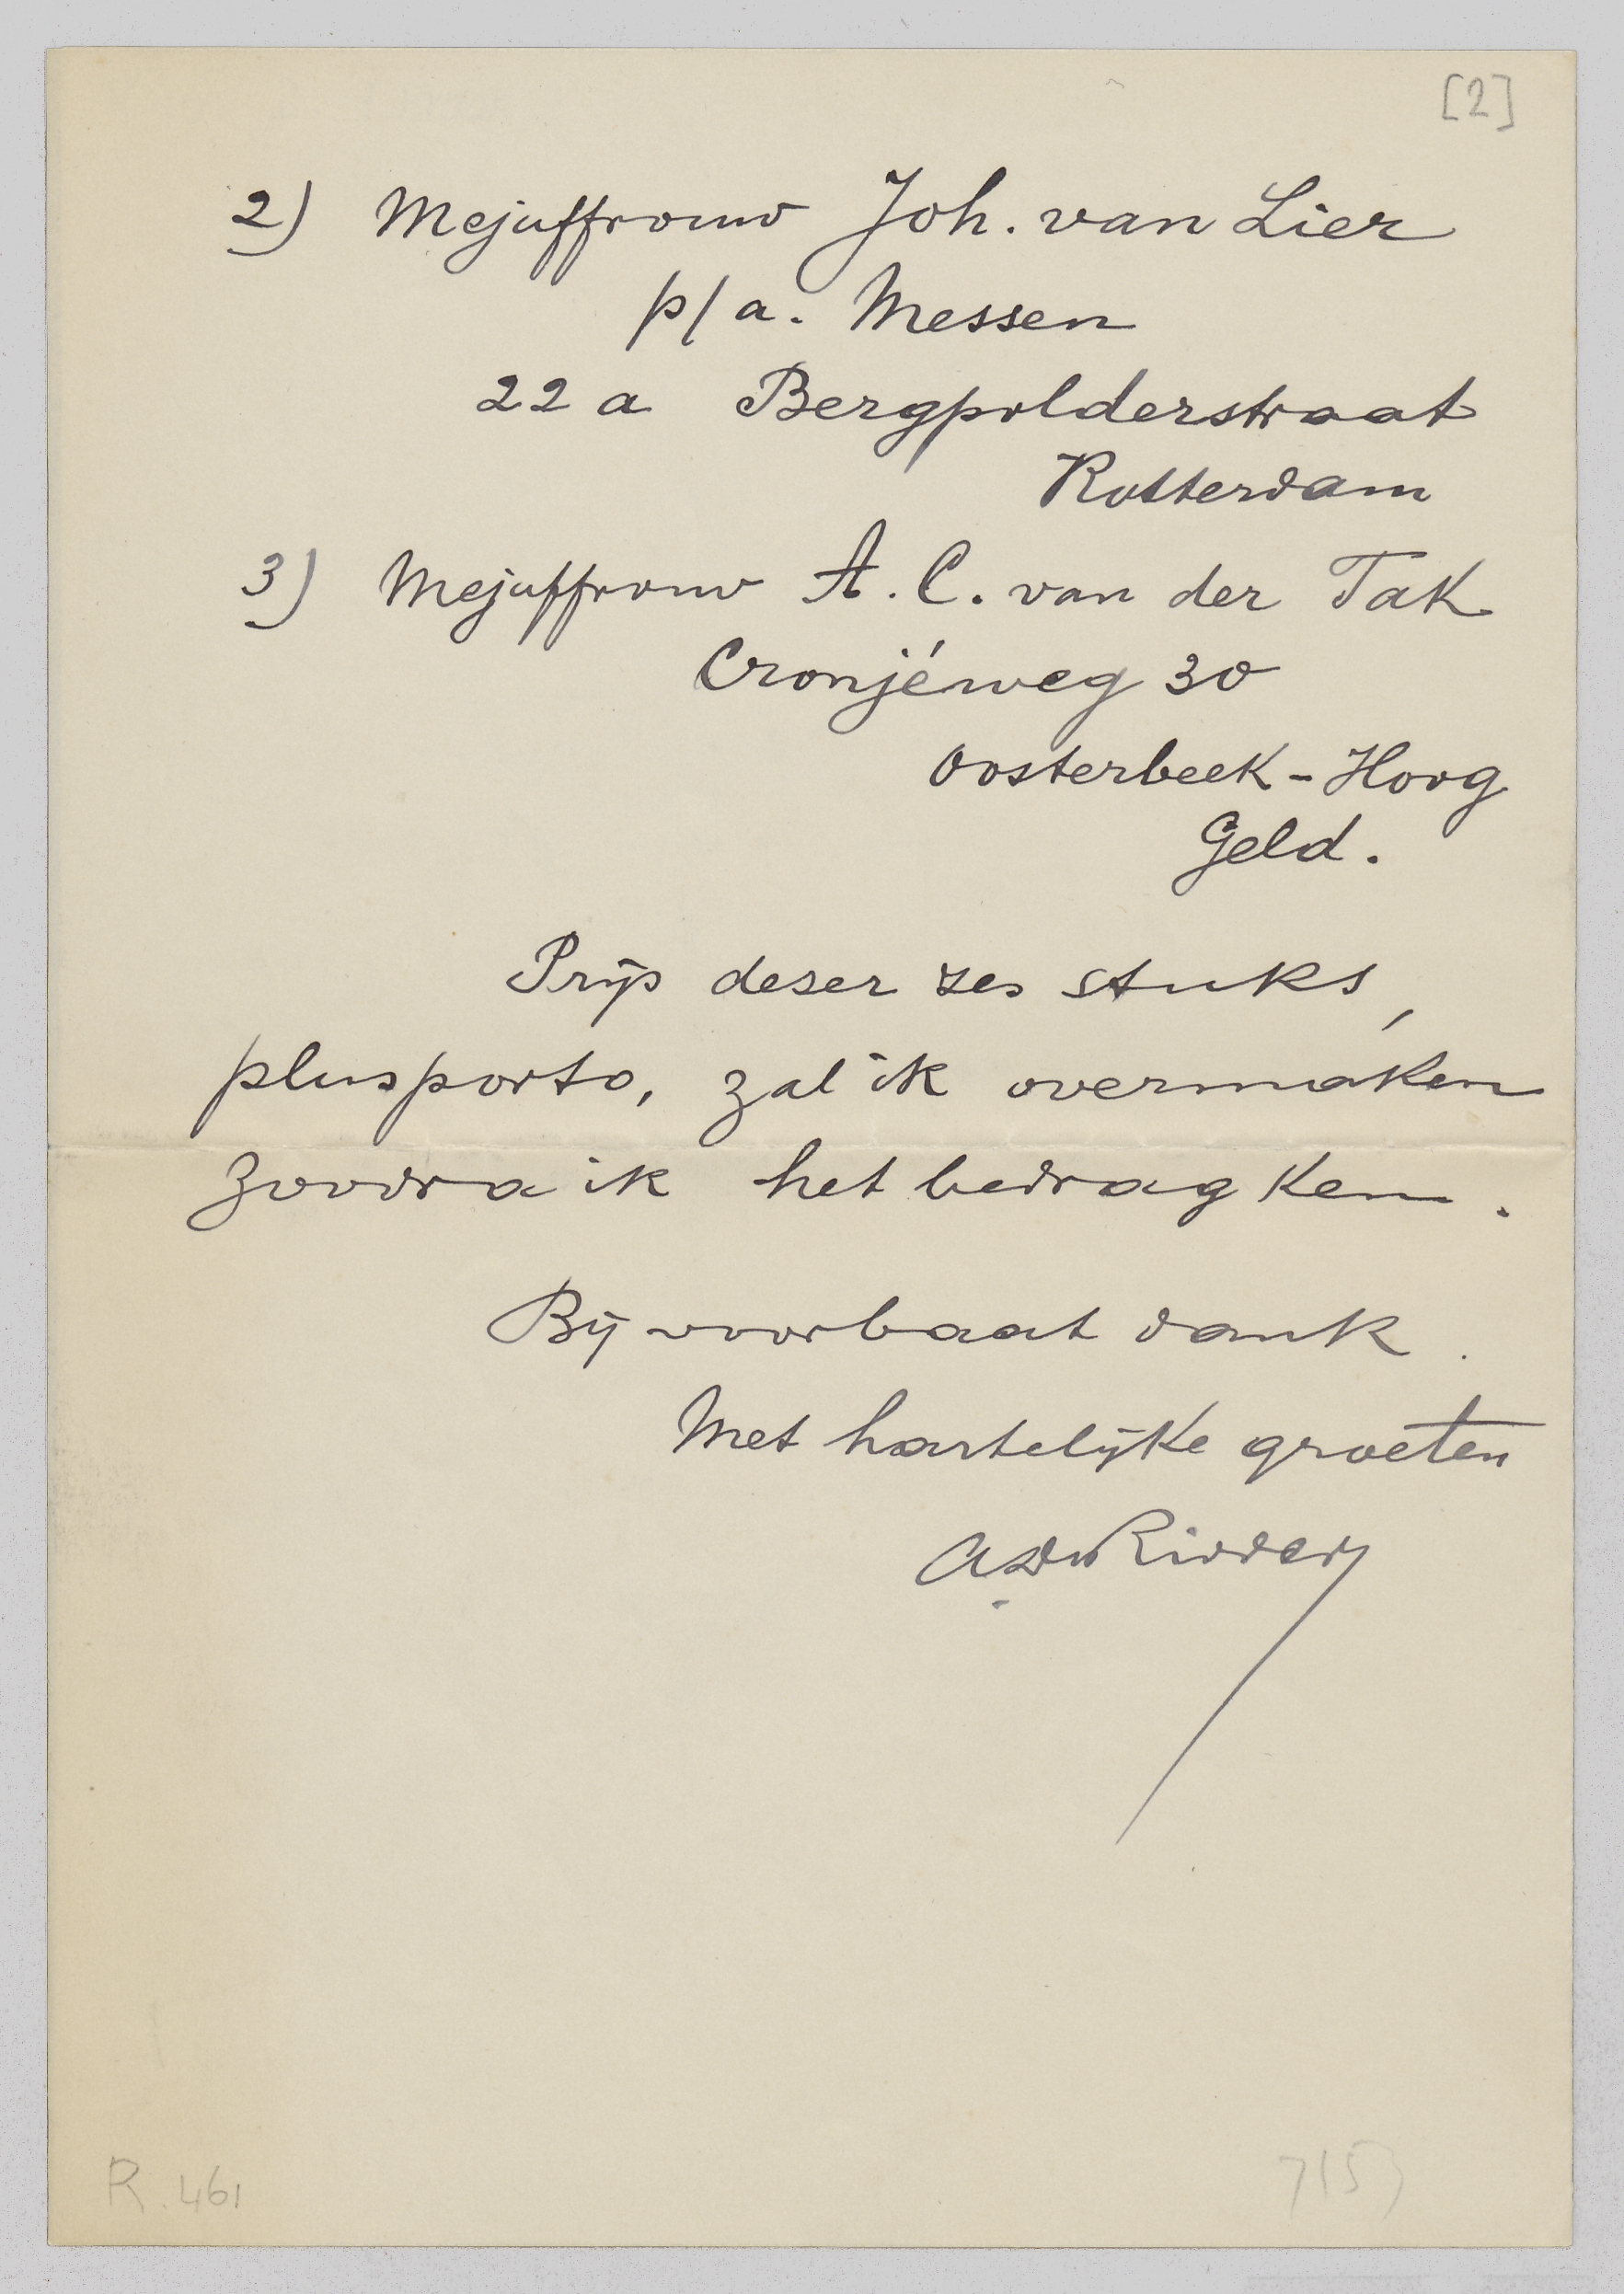 [2]
2) Mejuffrouw Joh. van Lier
p/a. Messen
22 a Bergpolderstraat
Rotterdam
3) Mejuffrouw A. C. van der Tak
Cronjéweg 30
Oosterbeek-Hoog
Geld.
Prijs dezer zes stuks,
plus porto, zal ik overmaken
zoodra ik het bedrag ken.
Bij voorbaat dank.
Met hartelijke groeten
Ridder
R. 461